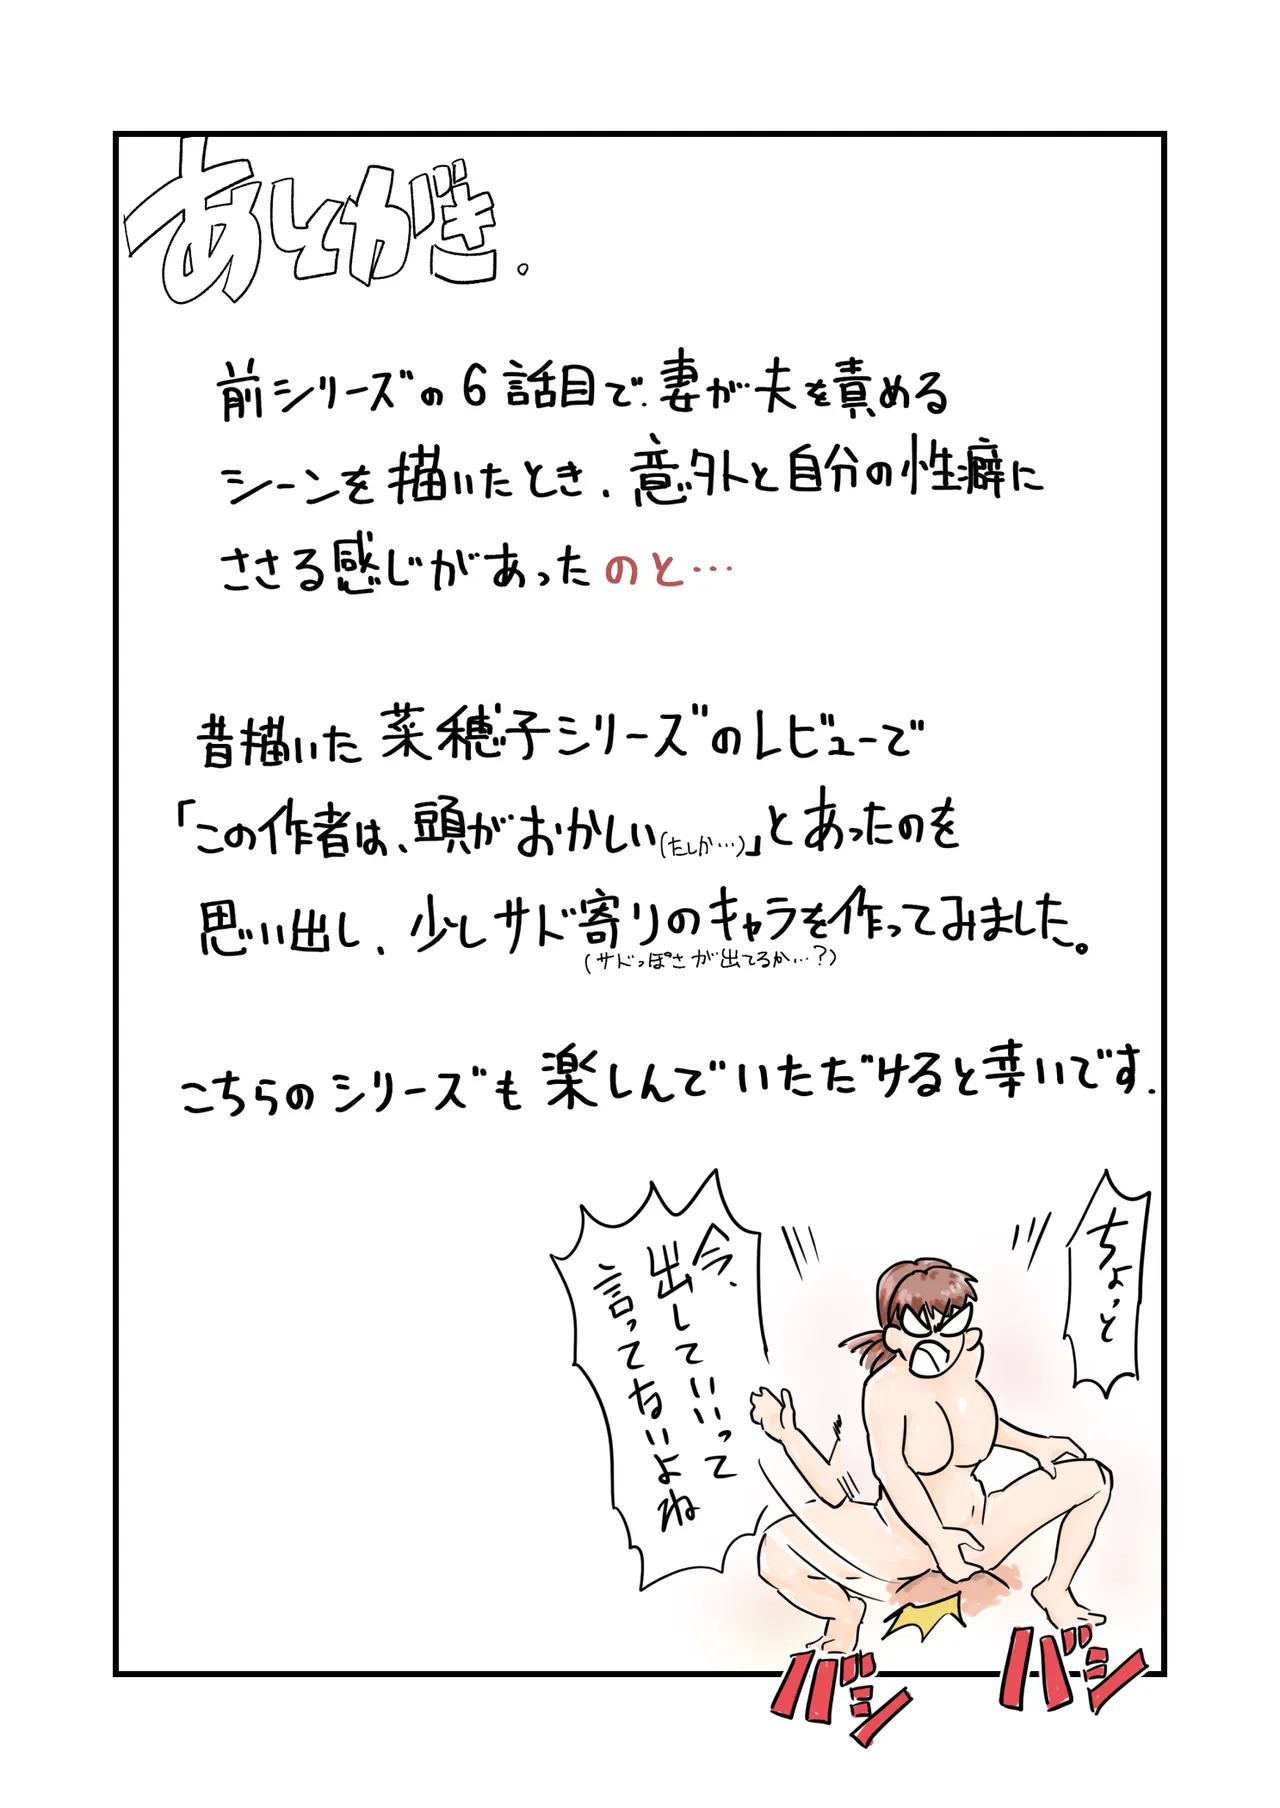 あとがき.
前シリーズの6話目で.妻が夫を責める
シーンを描いたとき、意外と自分の性癖に
ささる感じがあったのと…
昔描いた菜穂子シリーズのレビューで
「この作者は、頭がおかしい(たしか…)」とあったのを
思い出し、少しサド寄りのキャラを作ってみました。
(サドっぽさが出てるか…?)
こちらのシリーズも楽しんでいただけると幸いです.
ちょっと
今、
出していいって
言ってないよね
バシ
バシ